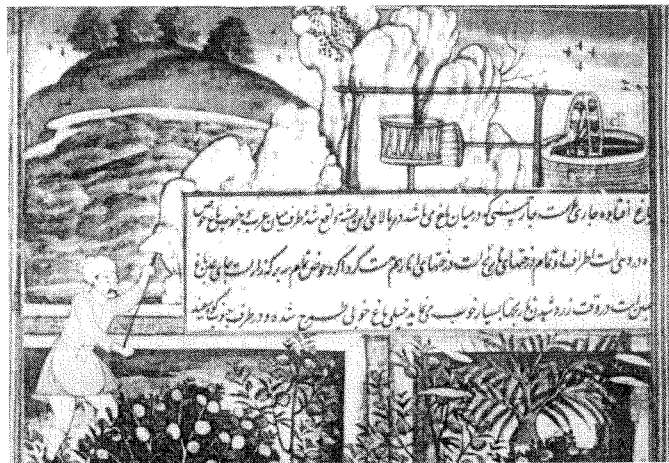 باغ افتاده جاری است چارچمنی که در میان باغ می باشد در بالای این پشته واقع شده طرف میان غرب و جنوب باغ حوض
ده در ده است اطراف او تمام درختهای نارنج است درختهای انار هم هست گرداگرد حوض تمام سه برگه زار است جای عین باغ
همین است در وقت زرد شدن نارنجها بسیار خوب می نماید خیلی باغ خوبی طرح شده و در طرف جنوب کوه سفید